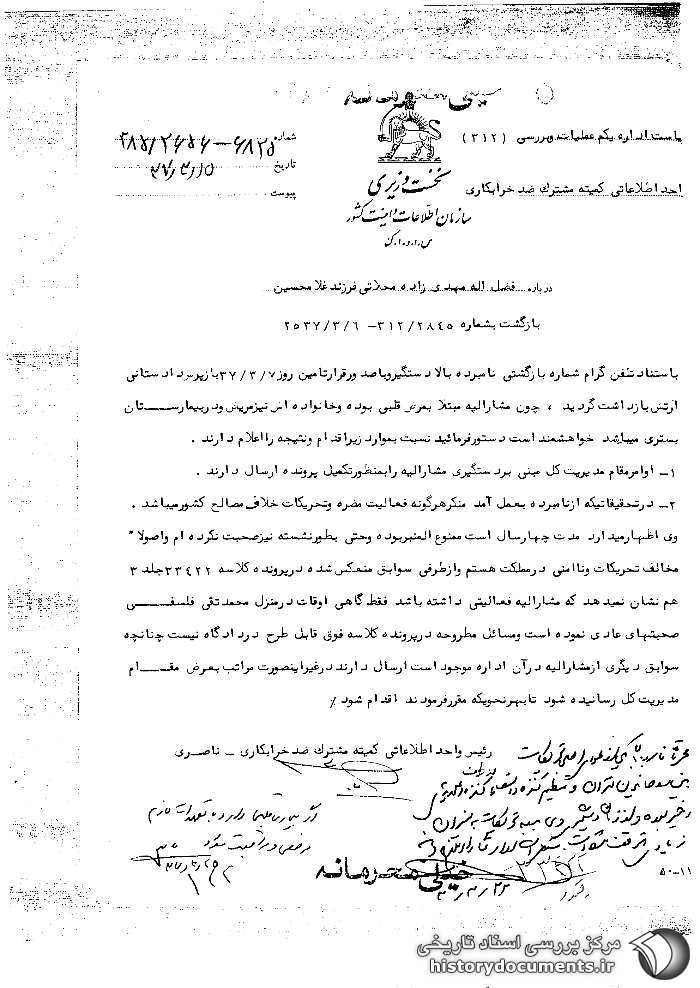 خیلی محرمانه
باستناد اداره یکم عملیات وبررسی (۳۱۲)
شماره ۳۸۵/۲۶۵۶-۶۸۲۵
تاریخ ۳۷/۳/۱۵
پیوست
واحد اطلاعاتی کمیته مشترک ضد خرابکاری
نخست وزیری
سازمان اطلاعات و امنیت کشور
س.ا.و.ا.ک
درباره فضل اله مهدی زاده محلاتی فرزند غلامحسین
بازگشت بشماره ۳۱۲/۲۸۴۵ - ۲۵۳۷/۳/۶
باستناد تلفن گرام شماره بازگشتی نامبرده بالا دستگیروباصد ورقرارتامین روز ۳۷/۳/۷ بازپرس دادستانی
ارتش بازداشت گردید ، چون مشارالیه مبتلا بمرض قلبی بوده وخانواده اش نیزمریض ودربیمارستان
بستری میباشد خواهشمند است دستورفرمائید نسبت بموارد زیراقدام ونتیجه رااعلام دارند .
۱- اوامرمقام مدیریت کل مبنی بردستگیری مشارالیه رابمنظورتکمیل پرونده ارسال دارند .
۲- درتحقیقاتیکه ازنامبرده بعمل آمد منکرهرگونه فعالیت مضره وتحریکات خلاف مصالح کشورمیباشد .
وی اظهارمیدارد مدت چهارسال است ممنوع المنبربوده وحتی بطورنشسته نیزصحبت نکرده ام واصولا"
مخالف تحریکات وناامنی درمملکت هستم وازطرفی سوابق منعکس شده درپرونده کلاسه ۳۳۴۲۲ جلد ۳
هم نشان نمیدهد که مشارالیه فعالیتی داشته باشد فقط گاهی اوقات درمنزل محمدتقی فلسفی
صحبتهای عادی نموده است ومسائل مطروحه درپرونده کلاسه فوق قابل طرح دردادگاه نیست چنانچه
سوابق دیگری ازمشارالیه درآن اداره موجود است ارسال دارند درغیراینصورت مراتب بعرض مقام
مدیریت کل رسانیده شود تابهرنحویکه مقررفرمودند اقدام شود /
رئیس واحد اطلاعاتی کمیته مشترک ضد خرابکاری - ناصری
خیلی محرمانه
۵۰-۱۱
مرکز بررسی اسناد تاریخی
historydocuments.ir